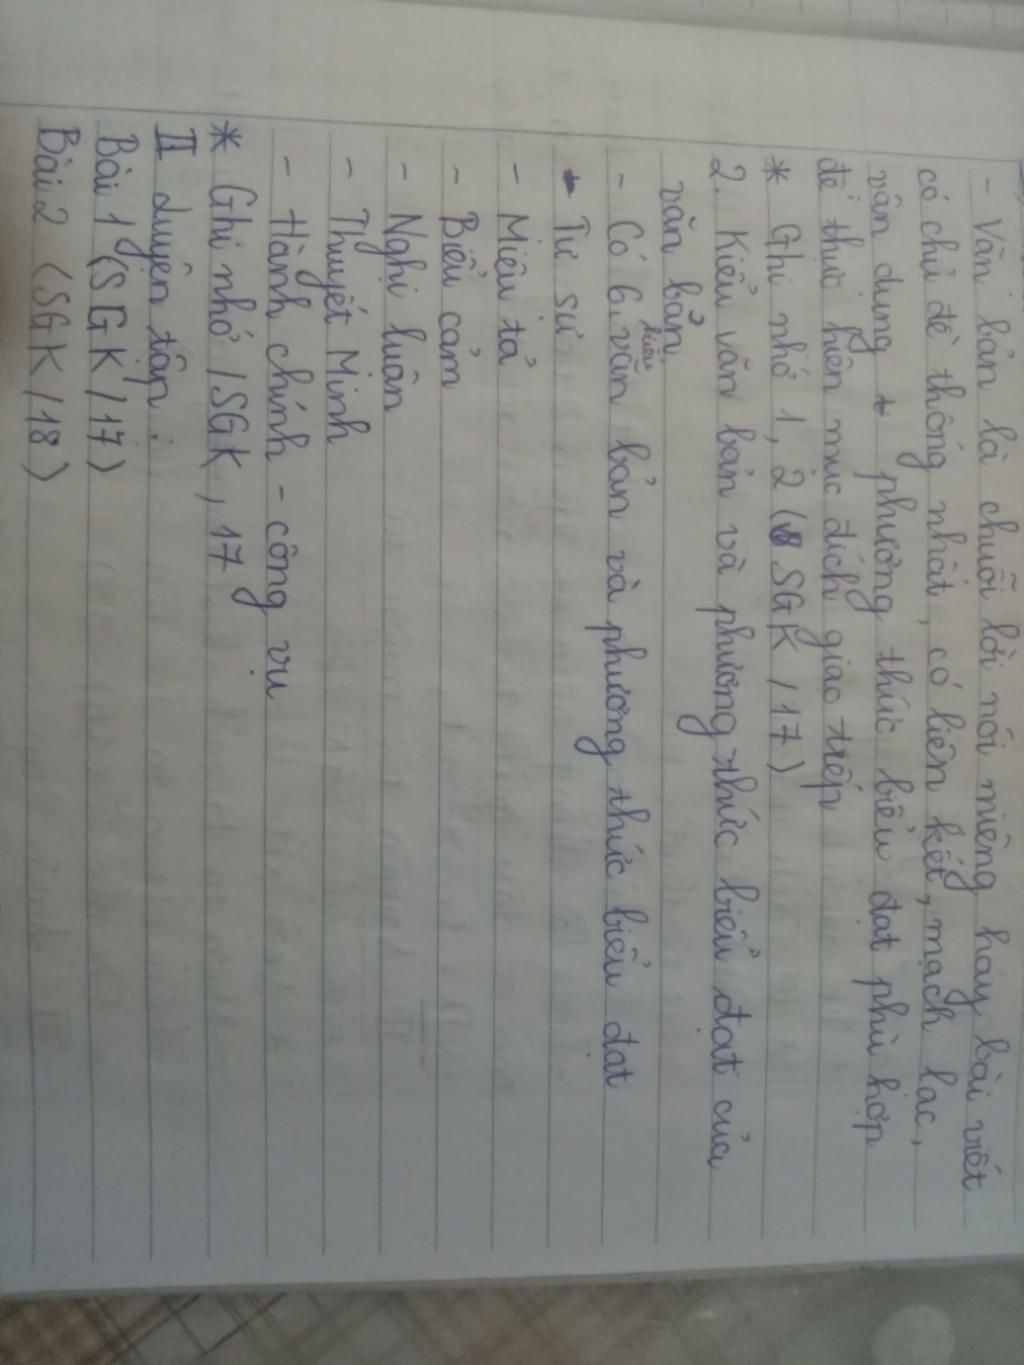 - Văn bản là chuỗi lời nói miệng hay bài viết
có chủ đề thống nhất, có liên kết, mạch lạc,
vận dụng phương thức biểu đạt phù hợp
để thực hiện mục đích giao tiếp
* Ghi nhớ 1, 2 (SGK / 17)
2. Kiểu văn bản và phương thức biểu đạt của
văn bản
- Có 6 kiểu văn bản và phương thức biểu đạt
- Tự sự
- Miêu tả
- Biểu cảm
- Nghị luận
- Thuyết Minh
- Hành chính - công vụ
* Ghi nhớ / SGK, 17
II Luyện tập:
Bài 1 (SGK / 17)
Bài 2 (SGK / 18)